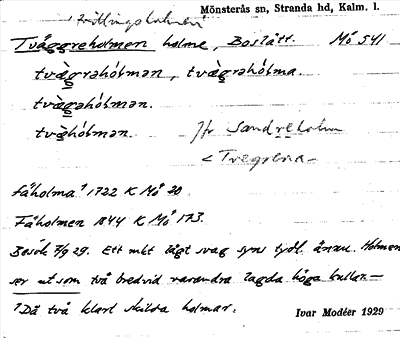 'Tvillingholmen'
Mönsterås sn, Stranda hd, Kalm. l.
Tväggreholmen holme, Boslätt. Mö 541
tvàgrahólman, tvàgrahólma.
tvàgahólman.
tvàhólman.
Jfr Sandreholm
< Tregrena-
Fåholma¹ 1722 K Mö 20
Fåholmen 1844 K Mö 173.
Besök 7/9 29. Ett mkt lågt svag syns tydl. ännu. Holmen
ser ut som två bredvid varandra lagda höga kullar.—
¹Då två klart skilda holmar.
Ivar Modéer 1929